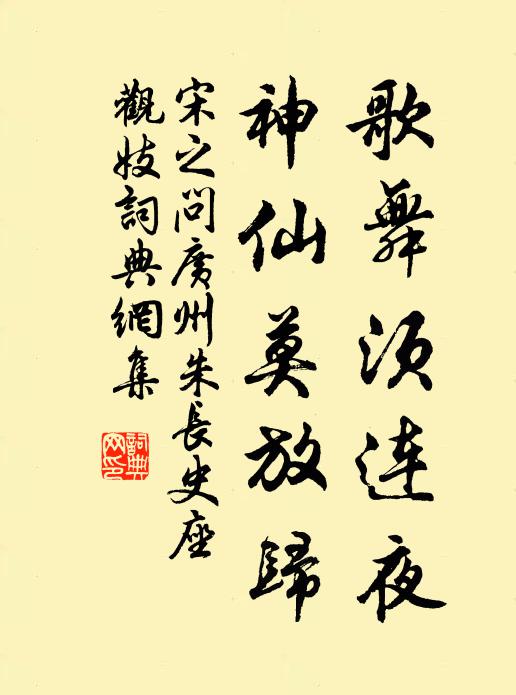 歌舞須連夜
神仙莫放歸
宋之問廣州朱長史座
觀妓詞典網集
詞典網印